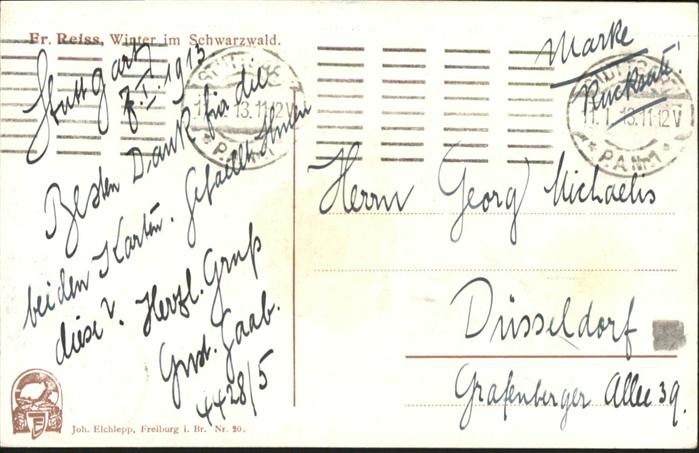 Fr. Reiss, Winter im Schwarzwald.
Stuttgart
7.I.1913
Besten Dank für die
beiden Karten. Gefällt Ihnen
diese? Herzl. Gruß
Gust. Gaab.
4428/5
Joh. Elchlepp, Freiburg i. Br. Nr. 20.
Marke
Rückseite!
13.11-12V
P.A.Nr.1
11.1.13.11-12V
P.A.Nr.1
Herrn Georg Michaelis
Düsseldorf
Grafenberger Allee 39.